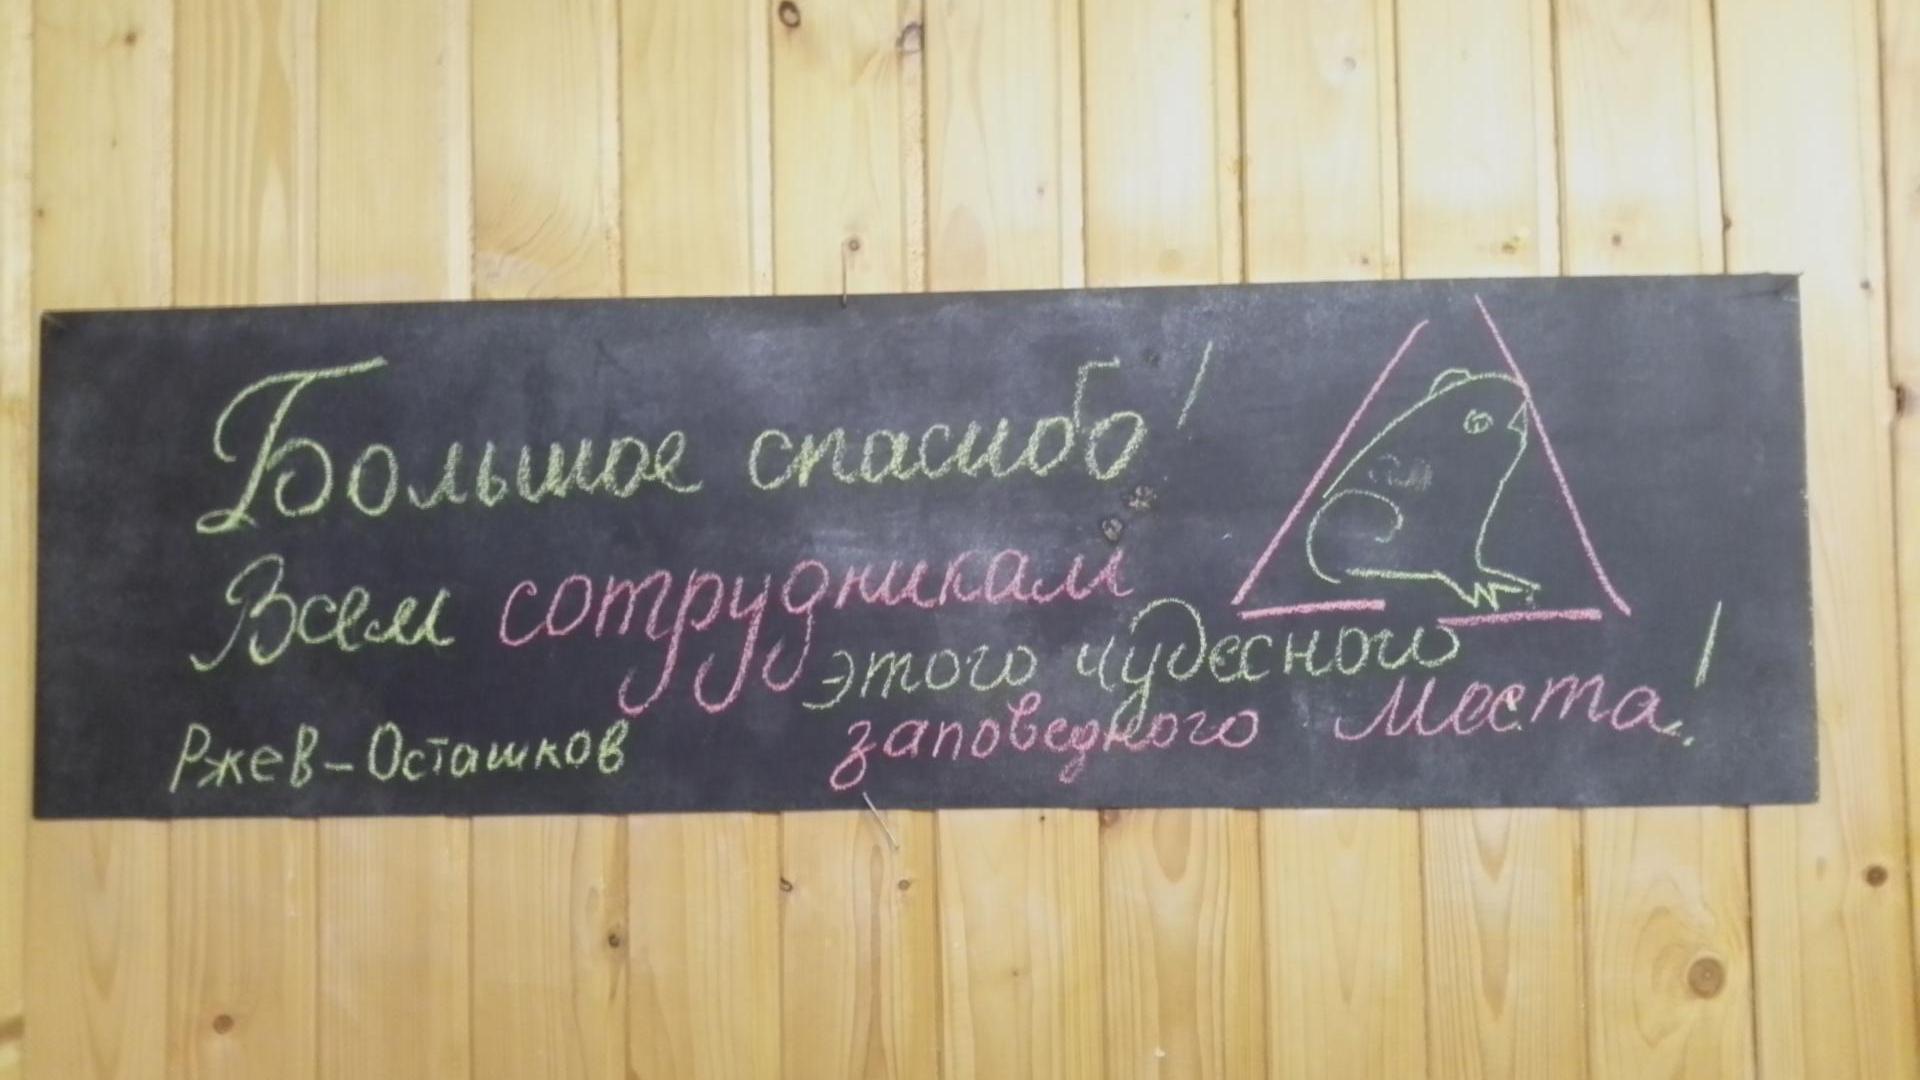 Большое спасибо!
Всем сотрудникам
этого чудесного
заповедного места!
Ржев-Осташков